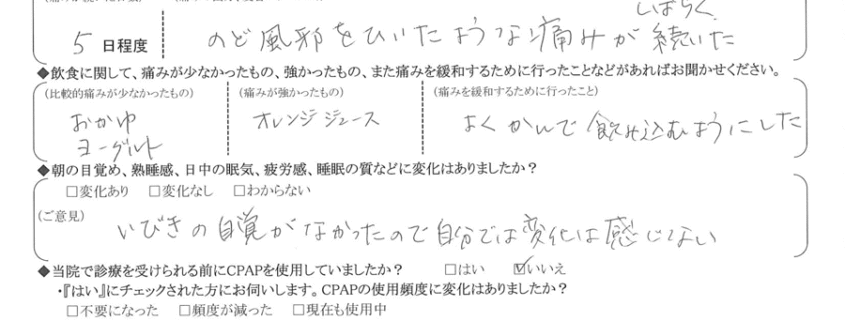 しばらく
5 日程度 のど風邪をひいたような痛みが続いた
◆飲食に関して、痛みが少なかったもの、強かったもの、また痛みを緩和するために行ったことなどがあればお聞かせください。
(比較的痛みが少なかったもの) (痛みが強かったもの) (痛みを緩和するために行ったこと)
おかゆ オレンジジュース よくかんで飲み込むようにした
ヨーグルト
◆朝の目覚め、熟睡感、日中の眠気、疲労感、睡眠の質などに変化はありましたか?
□変化あり □変化なし □わからない
(ご意見)
いびきの自覚がなかったので自分では変化は感じてない
◆当院で診療を受けられる前にCPAPを使用していましたか? □はい ☑いいえ
・『はい』にチェックされた方にお伺いします。CPAPの使用頻度に変化はありましたか?
□不要になった □頻度が減った □現在も使用中